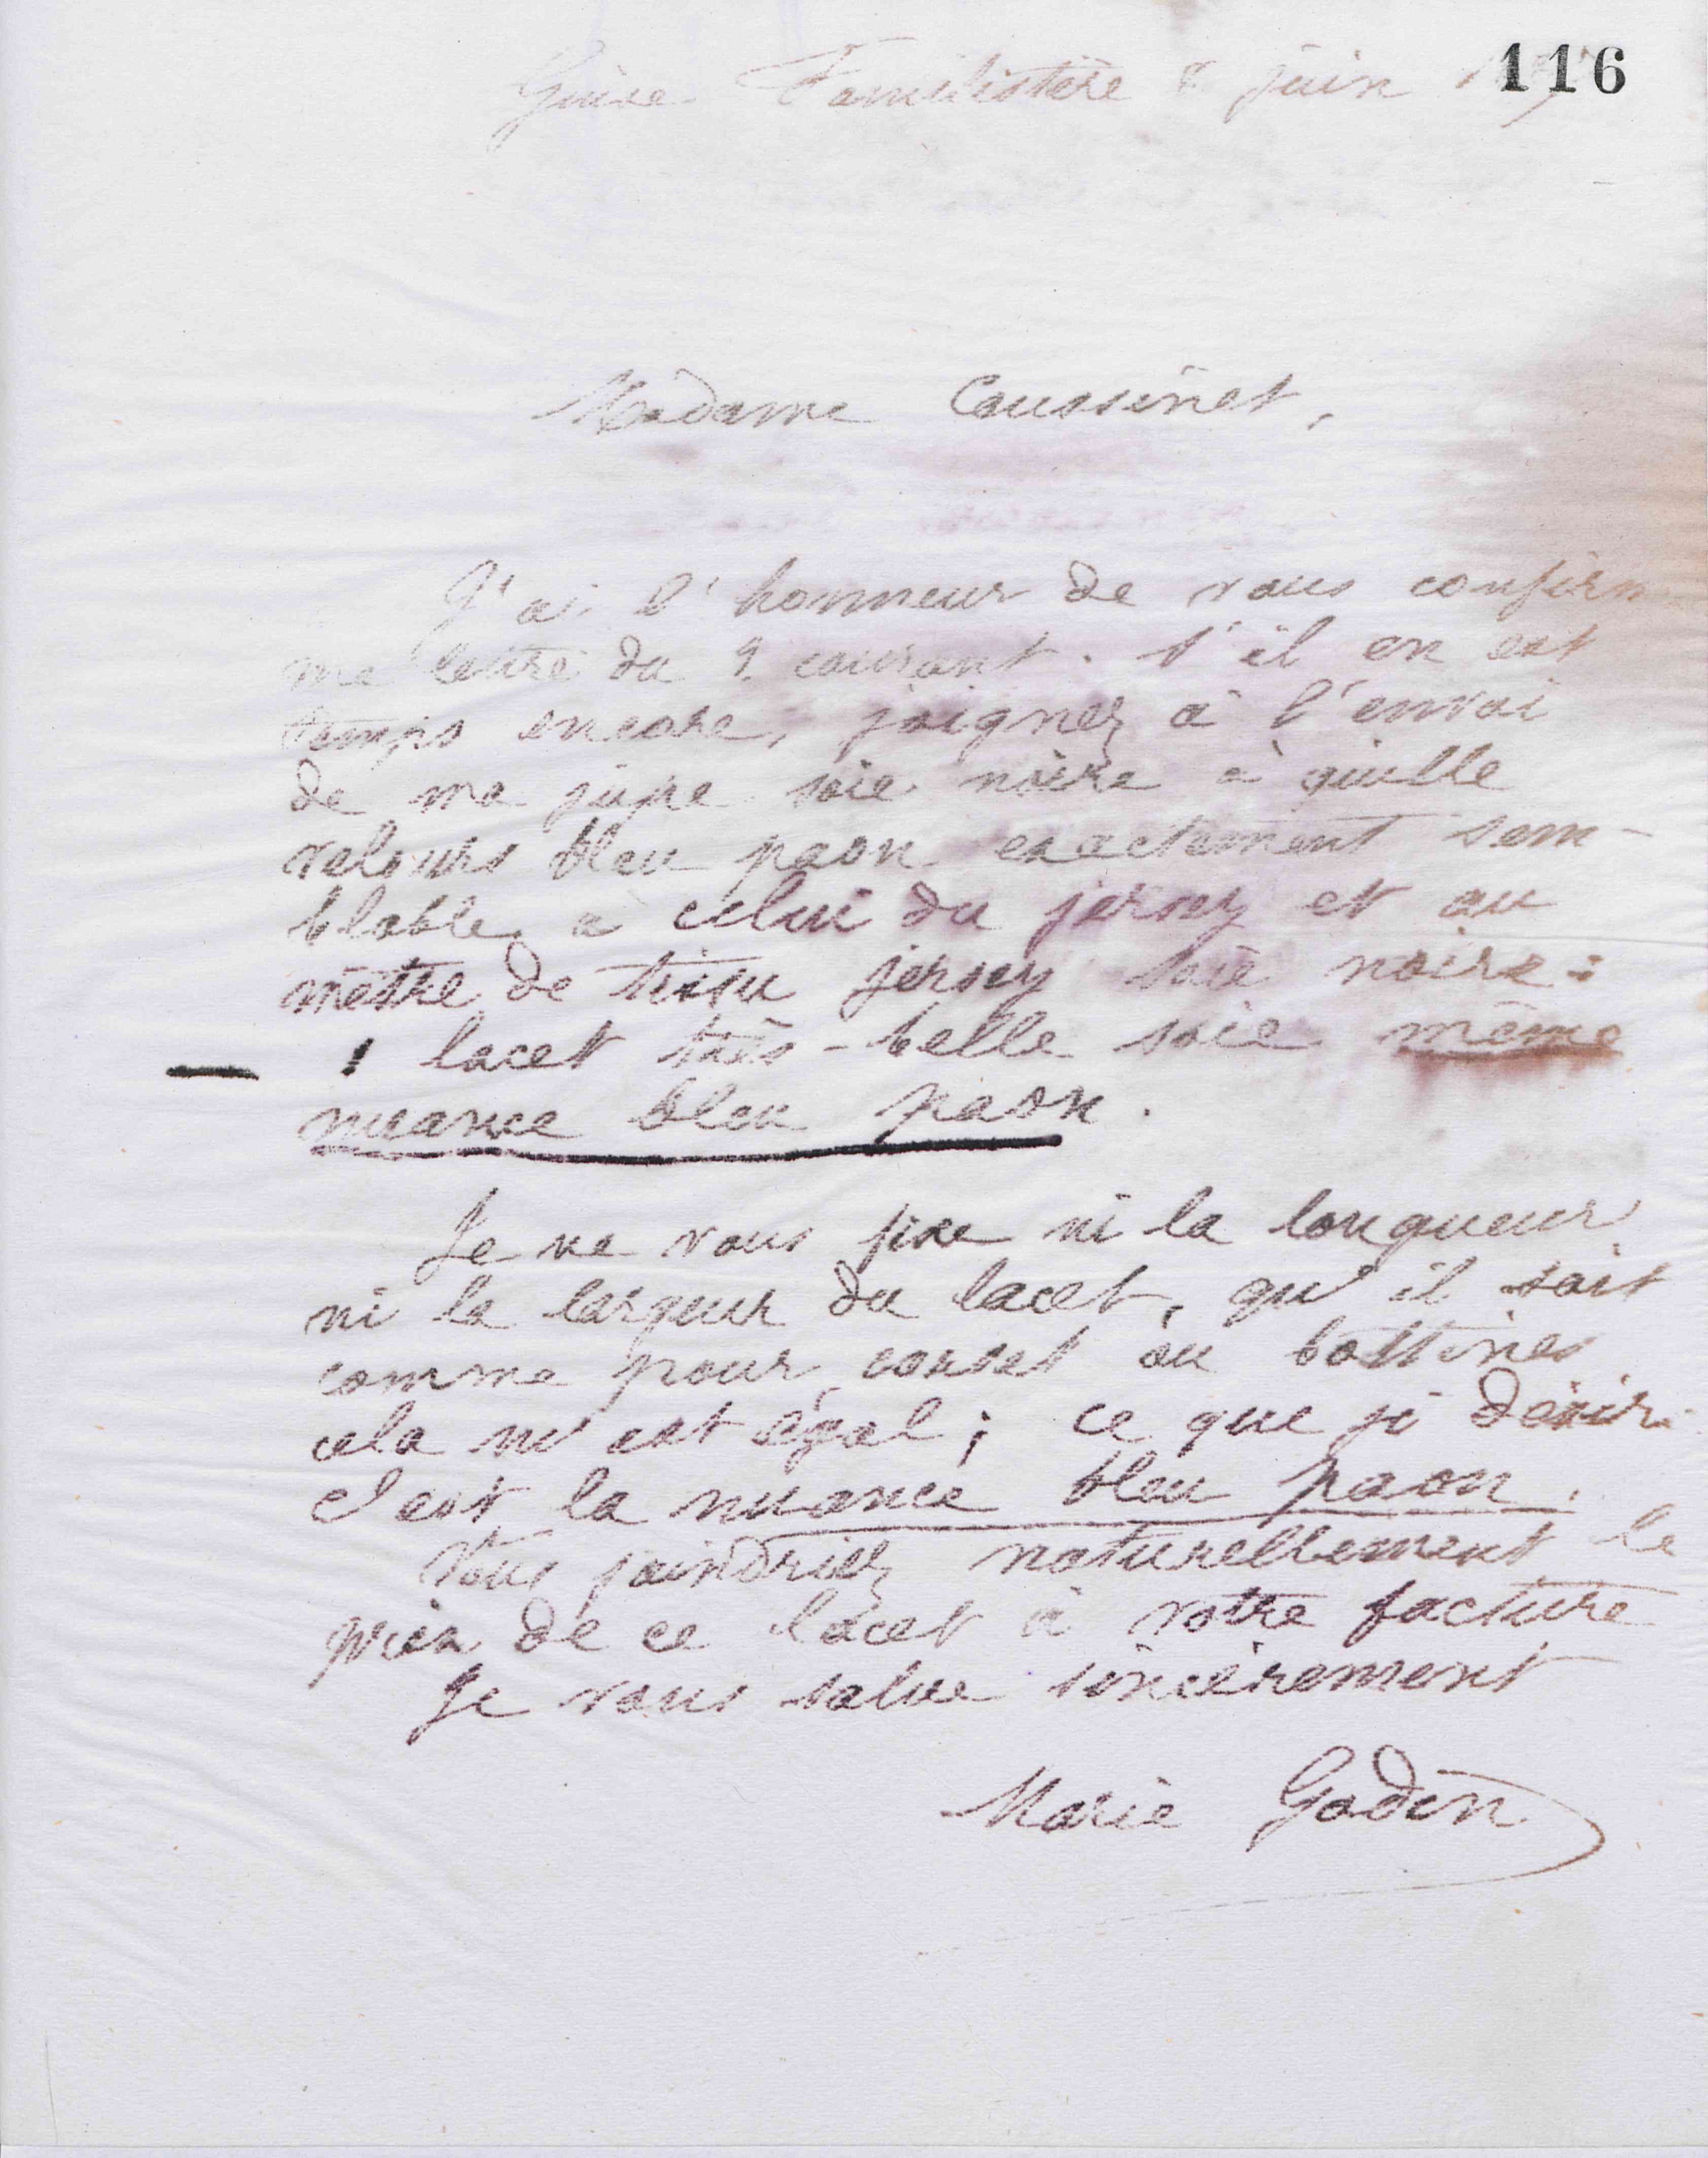 116
Guise Familistère 8 juin
Madame Coussinet,
J'ai l'honneur de vous confirm
ma lettre du courant. S'il en est
temps encore, joignez à l'envoi
de ma jupe soie noire à quille
velours bleu paon exactement sem-
blable à celui du jersey et au
mètre de tissu jersey soie noire :
— 1 lacet très-belle soie même
nuance bleu paon.
Je ne vous fixe ni la longueur
ni la largeur du lacet, qu'il soit
comme pour corset ou bottines
cela m'est égal ; ce que je désire
c'est la nuance bleu paon.
Vous joindriez naturellement le
prix de ce lacet à votre facture
Je vous salue sincèrement
Marie Godin